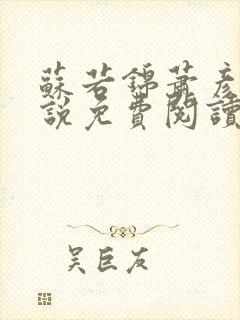 蘇若錦蕭彥
說免費閱讀
吴巨友